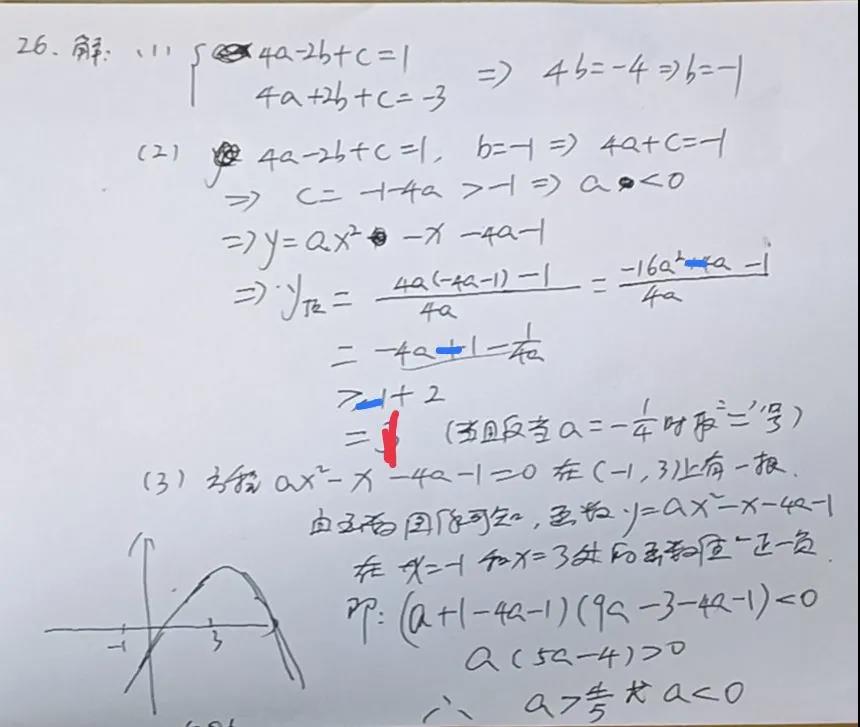 26. 解: (1) { 4a-2b+c=1
4a+2b+c=-3 => 4b=-4 => b=-1
(2) 4a-2b+c=1, b=-1 => 4a+c=-1
=> c=-1-4a >-1 => a<0
=> y=ax² -x -4a-1
=> y顶 = (4a(-4a-1)-1)/(4a) = (-16a²-4a-1)/(4a)
= -4a-1-1/(4a)
≥-1+2
=1 (当且仅当a=-1/4时取"="号)
(3) 方程 ax²-x-4a-1=0 在(-1,3)上有一根.
由函数图像可知, 函数 y=ax²-x-4a-1
在 x=-1 和 x=3 处的函数值一正一负.
即: (a+1-4a-1)(9a-3-4a-1)<0
a(5a-4)>0
∴ a>4/5 或 a<0
-1 3